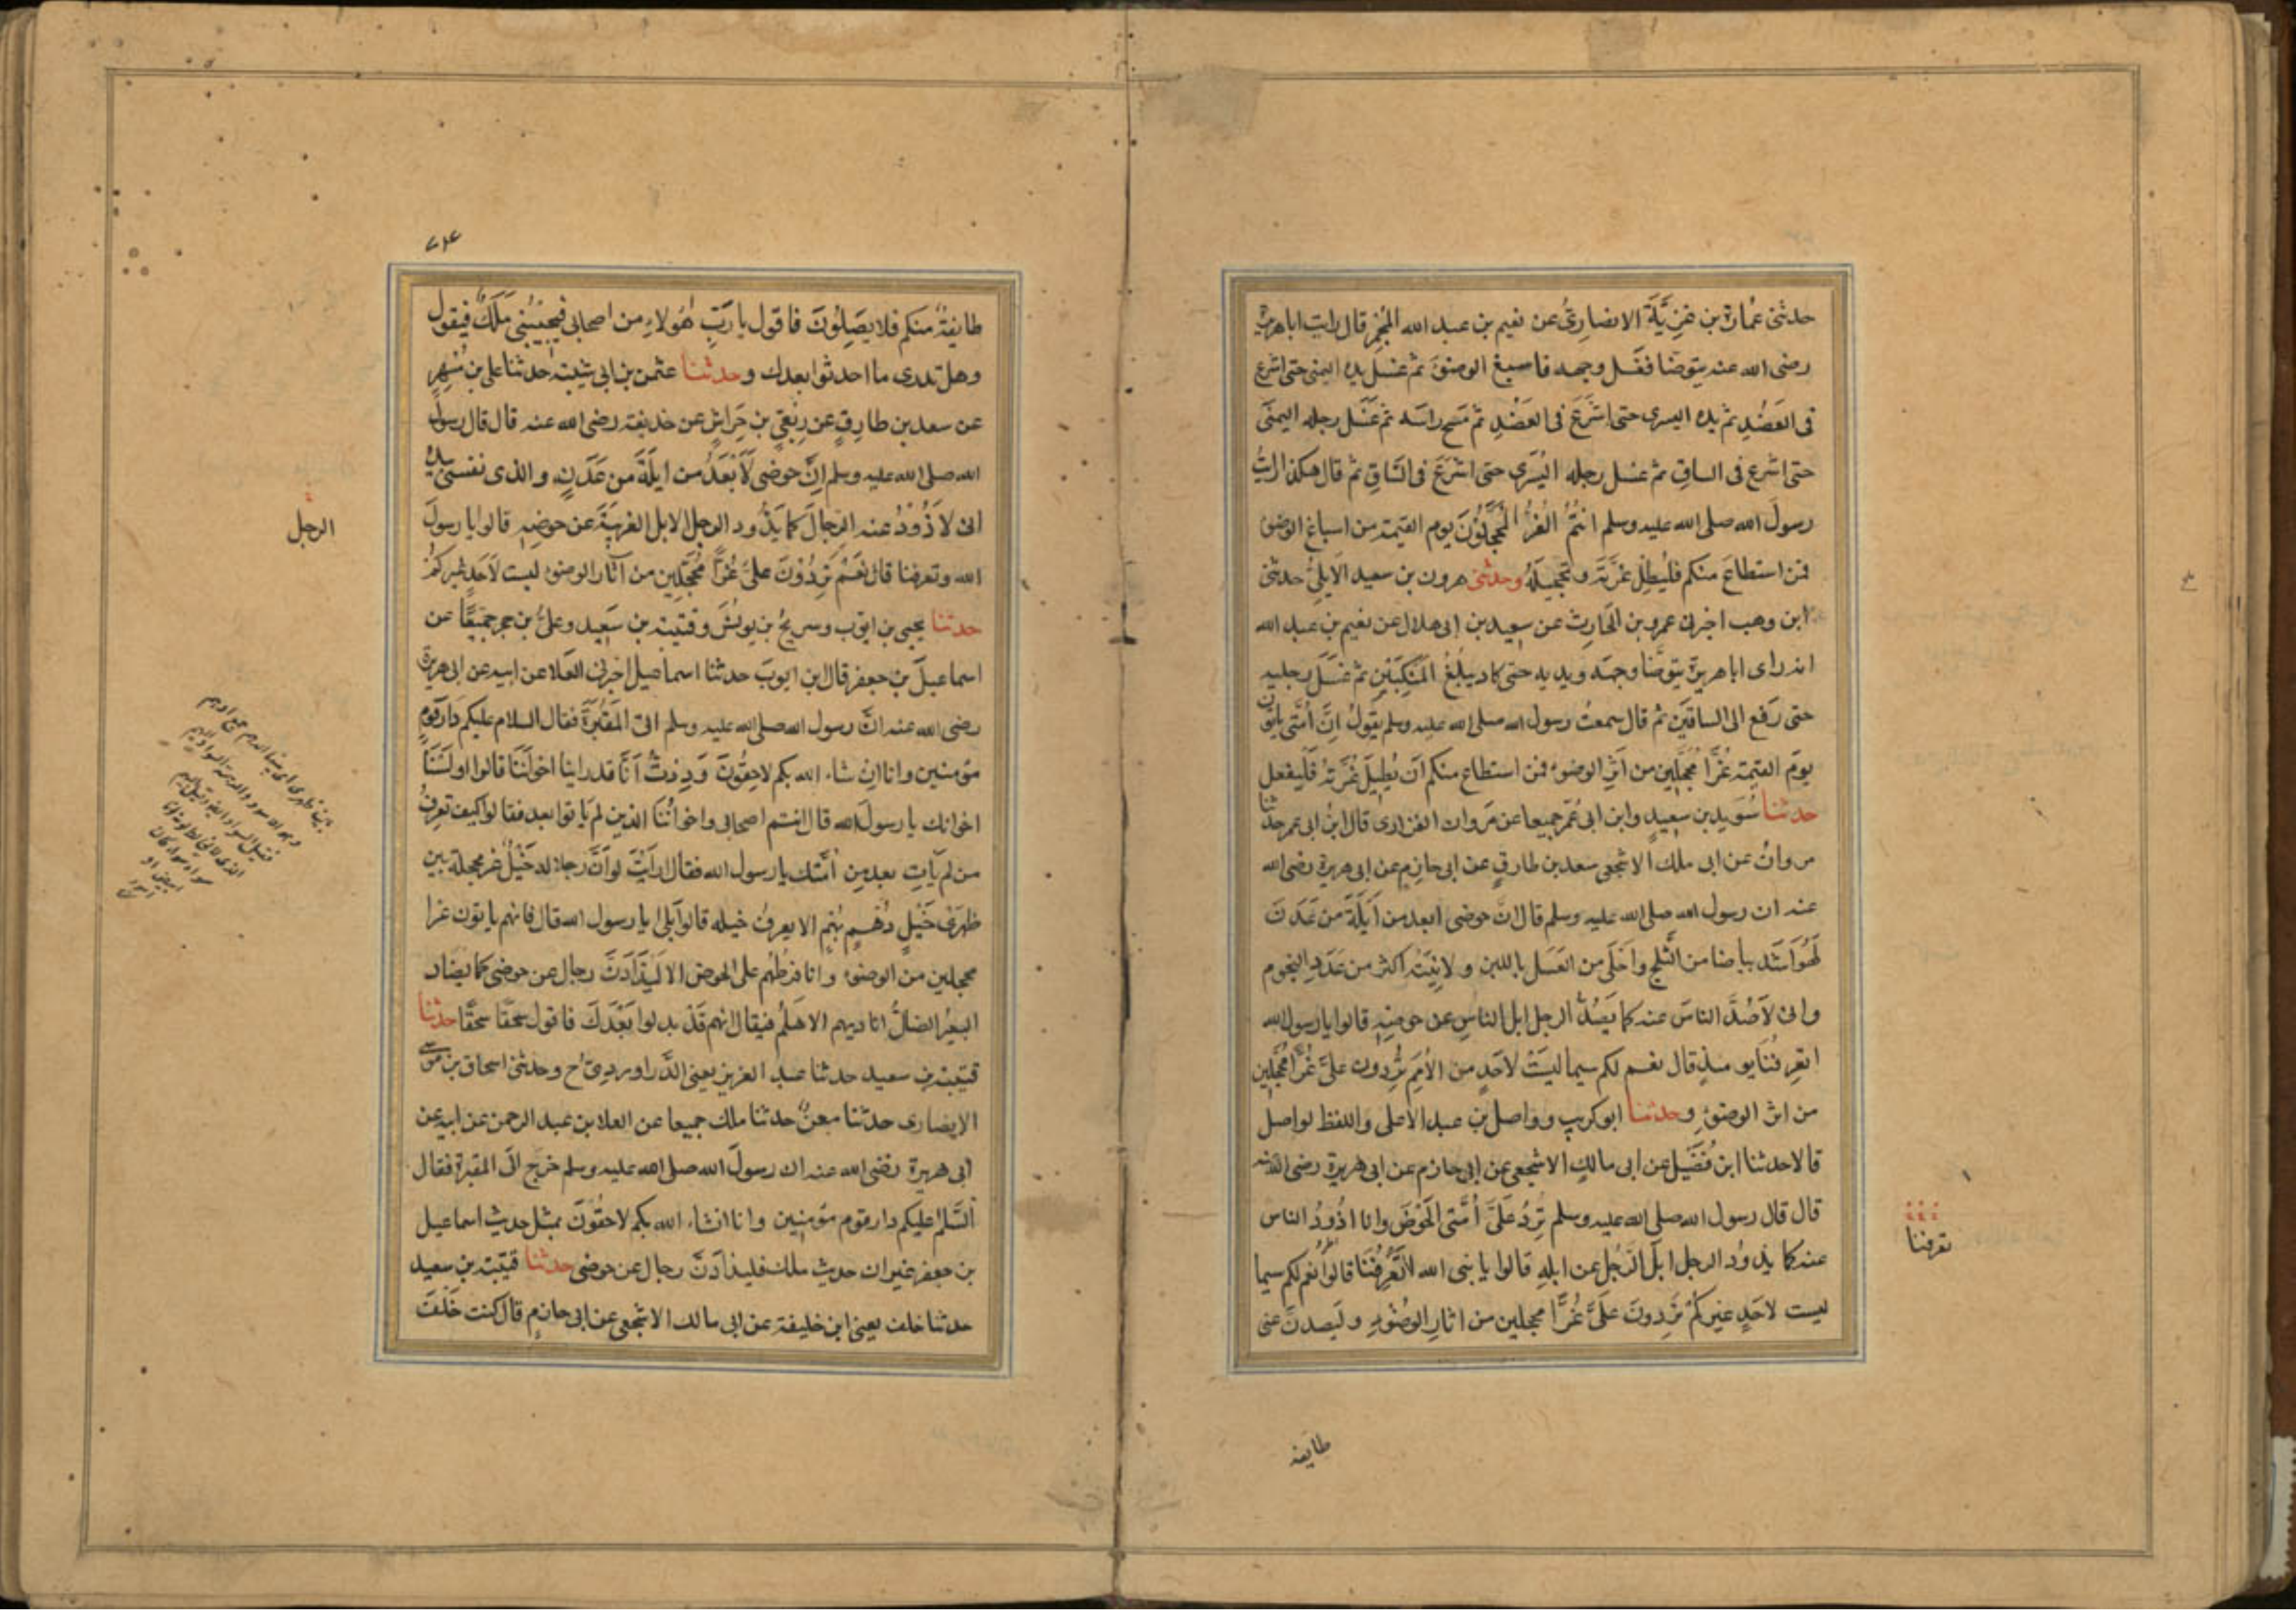 حدثنى عُمارة بن غَزِيَّةَ الانصارىُّ عن نعيم بن عبد الله المُجْمِرِ قال رايت اباهريرة
رضى الله عنه يتوضّا فغسل وجهه فاسبغ الوضوءَ ثم غسل يده اليمنى حتى اشرع
فى العَضُدِ ثم يده اليسرى حتى اشْرَعَ فى العَضُدِ ثم مَسح راسَه ثم غَسَل رجله اليمنَى
حتى اشرع فى الساقِ ثم غسل رجله اليُسْرَى حتى اشْرَعَ فى السَّاقِ ثم قال هكذا رايتُ
رسولَ الله صلى الله عليه وسلم انتُمُ الغُرُّ المُحَجَّلُوْنَ يوم القيمة من اسباغ الوضوءِ
فمن استطاعَ منكم فليُطِلْ غُرَّتَه وتحجيلَهُ وحدثنى هرون بن سعيد الاَيلىُّ حدثنى
ابن وهب اخبرنى عمرو بن الحَارِثِ عن سعيد بن ابى هلال عن نعيم بن عبد الله
انه راى اباهريرة يتوضَّا وجهَه ويديه حتى كاد يبلُغُ المَنْكِبَيْنِ ثم غَسَلَ رجليه
حتى رَفع الى الساقَين ثم قال سمعتُ رسول الله صلى الله عليه وسلم يَقولُ اِنَّ اُمَّتى ياتون
يومَ القيمة غُرًّا مُحجَّلِين من اَثَرِ الوضوءِ فمن استطاع منكم اَن يُطِيلَ غُرَّتَهُ فَليفعل
حدثنا سُوَيد بن سعيدٍ وابن ابى عُمَر جميعا عن مَروان الفزارى قال ابنُ ابى عمر حدثنا
مروانُ عن ابى ملك الاشجعى سعد بن طارقٍ عن ابى حازِم عن ابى هريرة رضى الله
عنه ان رسول الله صلى الله عليه وسلم قال انَّ حوضى ابعد من اَيلَةَ من عَدَنَ
لَهُوَ اَشَدُّ بياضا من الثَّلجِ واَحْلَى من العَسَل باللبن ولاٰنِيَتُه اكثر من عَدَدِ النجوم
وانى لاَصُدُّ الناسَ عنه كما يَصُدُّ الرجل ابل الناسِ عن حوضِهِ قالوا يا رسول الله
اتعرِفُنَا يومئذٍ قال نعم لكم سيما ليسَتْ لاحَدٍ من الاُمَمِ تَرِدون علىَّ غُرًّا مُحَجَّلِين
من اثر الوضوءِ وحدثنا ابو كريب وواصل بن عبد الاعلى واللفظ لواصل
قالا حدثنا ابن فُضَيل عن ابى مالكٍ الاشجعى عن ابى حازم عن ابى هريرة رضى الله عنه
قال قال رسول الله صلى الله عليه وسلم تَرِدُ عَلَىَّ اُمَّتى الحَوْضَ وانا اذُودُ الناس
عنه كما يذودُ الرجل ابلَ الرَّجُل عن ابله قالوا يا نبى الله اَتَعْرِفُنَا قال نعم لكم سيما
ليست لاحَدٍ غيرِكُمْ تَرِدونَ عَلَىَّ غُرًّا محجلين من اثارِ الوُضوءِ ولَيُصدنَّ عنى
تعرفنا
طايفة
طايفةٌ منكم فلا يصَِلُونَ فاقول يا رَبِّ هٰؤلاءِ من اصحابى فيُجِيبُنِى مَلَكٌ فيقول
وهل تدرى ما احدثوا بعدك وحدثنا عثمن بن ابى شيبة حدثنا على بن مُسْهِرٍ
عن سعد بن طارِقٍ عن رِبْعىّ بن حِرَاشٍ عن حذيفة رضى الله عنه قال قال رسول
الله صلى الله عليه وسلم اِنَّ حوضى لَاَبْعَدُ من ايلَةَ من عَدَنٍ والذى نفسى بيده
انى لاَذُوْدُ عنه الرِّجالَ كما يَذُود الرجل الابل الغريبَةَ عن حوضِهِ قالوا يا رسولَ
الله وتعرفنا قال نَعَمْ تَرِدُوْنَ علىَّ غُرًّا مُحَجَّلِين من آثار الوضوء ليست لاَحَدٍ غيركمُ
حدثنا يحيى بن ايوب وسريجُ بن يونُسَ وقتيبة بن سَعِيد وعلىُّ بن حجر جَمِيعًا عن
اسماعيلَ بن جعفر قال ابن ايوبَ حدثنا اسماعيل اخبرنى العَلاء عن ابيه عن ابى هريرة
رضى الله عنه انَّ رسول الله صلى الله عليه وسلم اتى المَقْبُرَةَ فقال السلام عليكم دَارَ قومٍ
مؤمنين وانا ان شاء الله بكم لاحِقُونَ وَدِدْتُ اَنَّا قد راينا اخوانَنَا قالوا اولَسْنَا
اخوانك يا رسول الله قال انتم اصحابى واخوانُنَا الذين لم يَاتوا بعد فقالوا كيف تعرفُ
من لم يَاتِ بعد من اُمَّتك يا رسول الله فقال اَرَاَيْتَ لو اَنَّ رجلا له خَيْلٌ غر محجلة بين
ظهرَى خَيْلٍ دُهْمٍ بُهْمٍ الا يعرفُ خيله قالوا بَلٰى يا رسول الله قال فانهم ياتون غرا
محجلين من الوضوء وانا فرطُهُم على الحوض الا لَيُذَادَنَّ رجال عن حوضى كما يضاد
البعيرُ الضالُّ اناديهم الا هَلُمَّ فيقال انهم قَدْ بدلوا بَعْدَكَ فاقول سُحْقًا سُحْقًا حدثنا
قتيبة بن سعيد حدثنا عبد العزيز يعنى الدَّراورْدِىَّ ح وحدثنى اسحاق بن موسى
الانصارى حدثنا معنٌ حدثنا ملك جميعا عن العلا بن عبد الرحمن عن ابيه عن
ابى هريرة رضى الله عنه ان رسولَ الله صلى الله عليه وسلم خرج الَى المقبرة فقال
اَلسَّلم عليكم دار قوم مؤمنين وانا انشاء الله بكم لاحقُوْنَ بمثل حديث اسماعيل
بن جعفر غير ان حديث ملك فليذادَنَّ رجال عن حوضى حدثنا قتيبة بن سعيد
حدثنا خلف يعنى ابن خليفة عن ابى مالك الاشجعى عن ابى حازمٍ قال كنت خَلْفَ
الرجل